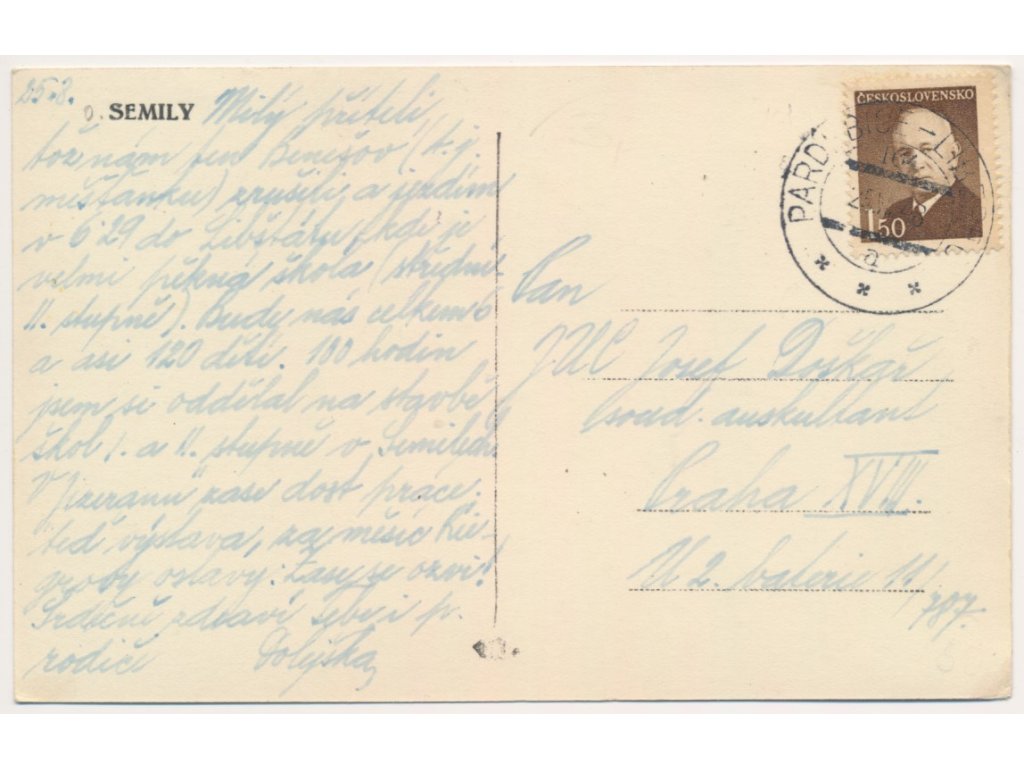 25.8.
SEMILY Milý příteli,
tož nám ten Benešov (t.j.
měšťanku) zrušili a jezdím
v 6˙29 do Libštátu, kde je
velmi pěkná škola (střední
II. stupně). Budy nás celkem 6
a asi 120 dětí. 100 hodin
jsem si oddělal na stavbě
škol I. a II. stupně v Semilech.
V "Jizeranu" zase dost práce:
teď výstava, za měsíc Rie-
grovy oslavy. Zase se ozvi!
Srdečně zdraví Tebe i p.
rodiče
ČESKOSLOVENSKO
1.50
PARDUBICE
a
Pan
JUC Josef Doškář
soud. auskultant
Praha XVIII.
U 2. baterie 11/
787.